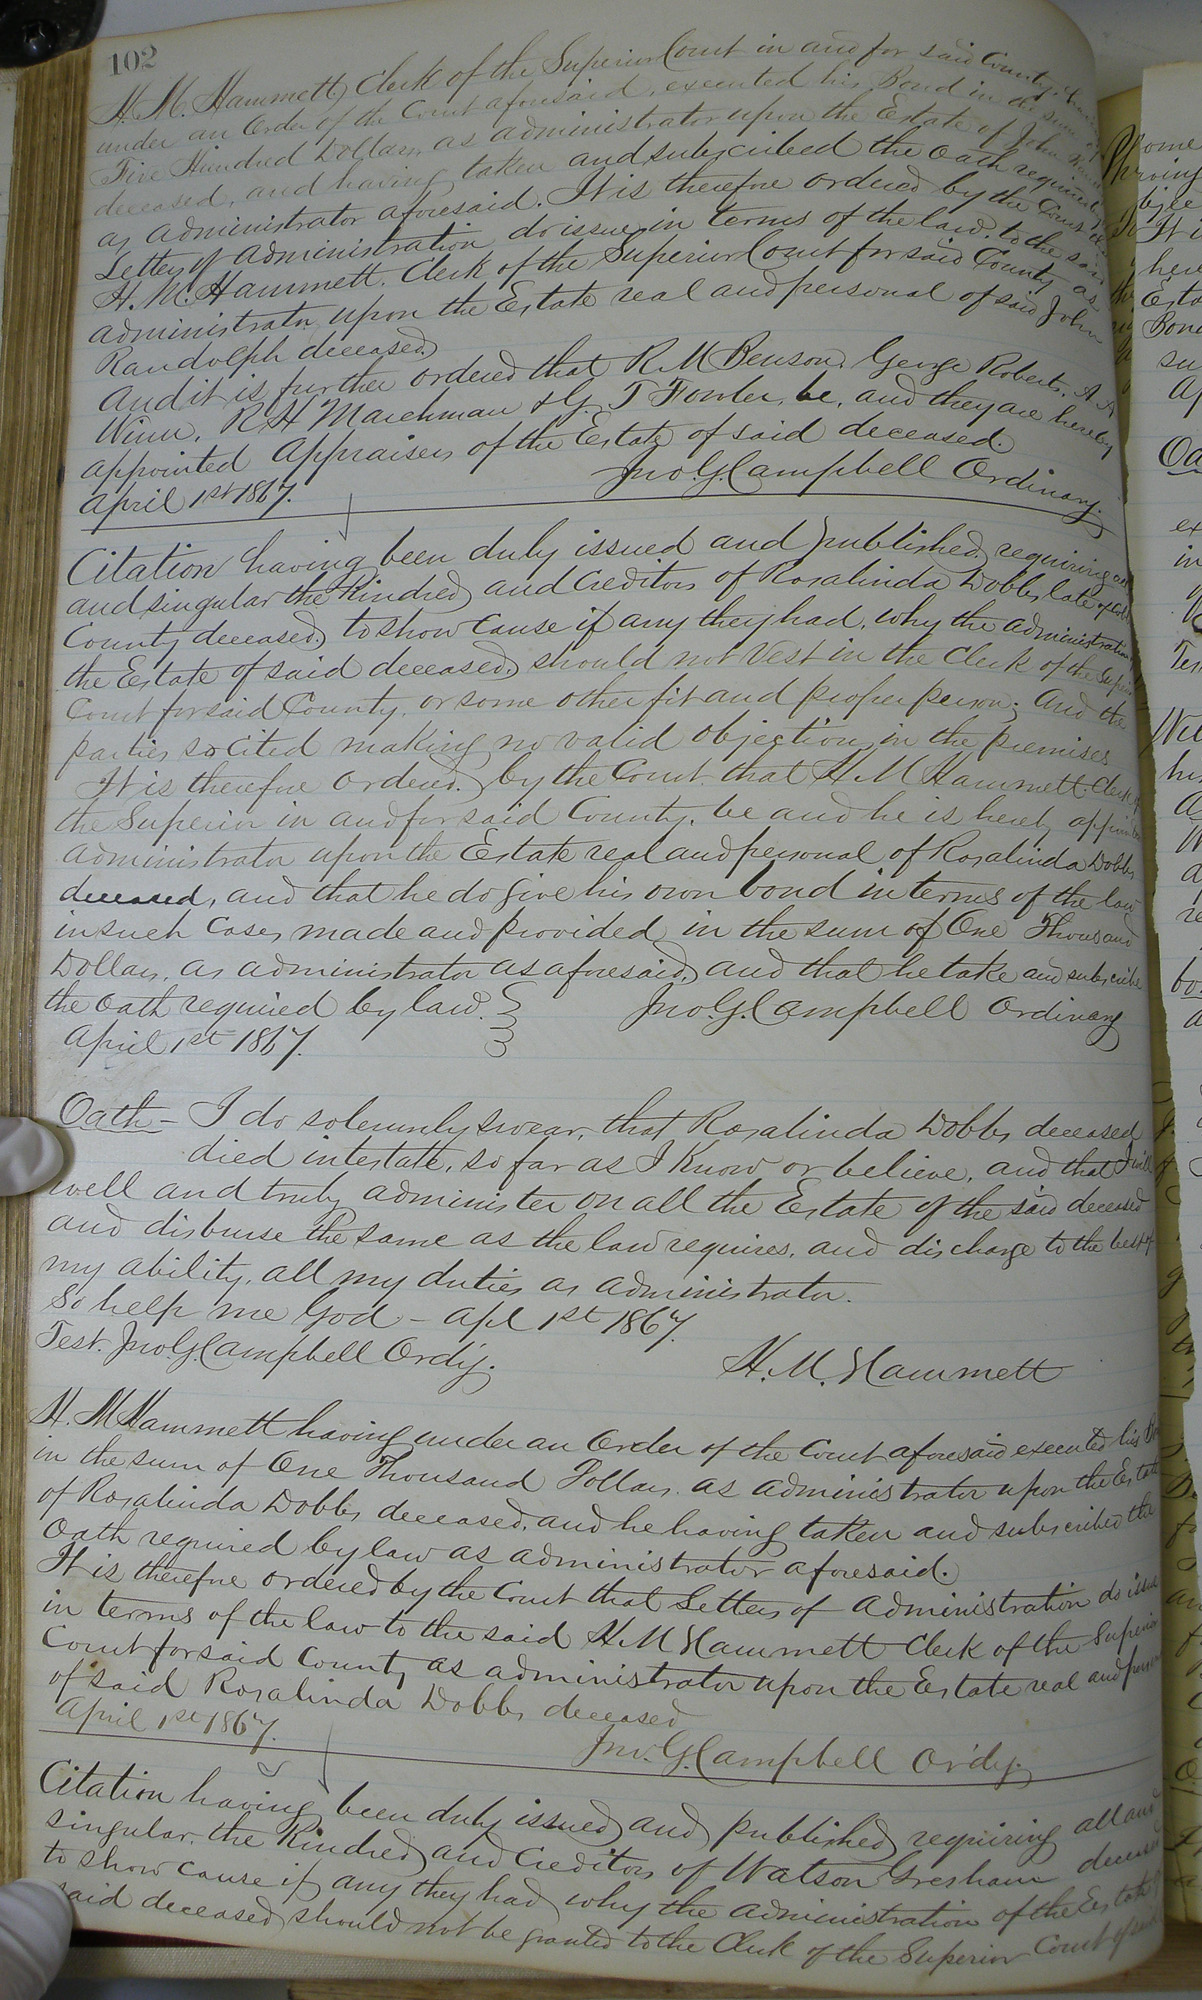 102
H. M. Hammett, Clerk of the Superior Court in and for said County, having
under an Order of the Court aforesaid, executed his Bond in the sum of
Five Hundred Dollars, as administrator upon the Estate of John
deceased, and having taken and subscribed the oath required
as administrator aforesaid. It is therefore ordered by the Court
Letters of administration do issue, in terms of the law, to the said
H. M. Hammett, Clerk of the Superior Court for said County as
administrator upon the Estate real and personal of said John
Randolph deceased,
And it is further ordered that R. M Benson, George Roberts, A A
Winn, R H Marchman & G. T Fowler, be, and they are hereby
appointed Appraisers of the Estate of said deceased.
Jno. G. Campbell Ordinary.
April 1st 1867.
Citation having been duly issued and published, requiring all
and singular the Kindred, and Creditors of Rosalinda Dobbs, late of Cobb
County deceased, to show cause if any they had, why the administration
the Estate of said deceased, should not vest in the Clerk of the Superior
Court for said County, or some other fit and proper person; And the
parties so cited making no valid objection, in the premises
It is therefore ordered, by the Court that H. M Hammett Clerk of
the Superior in and for said County, be and he is hereby appointed
administrator upon the Estate real and personal of Rosalinda Dobbs
deceased, and that he do give his own bond in terms of the law
in such cases made and provided, in the sum of One Thousand
Dollars, as administrator as aforesaid, and that he take and subscribe
the oath required by law.
Jno. G. Campbell Ordinary
April 1st 1867.
Oath - I do solemnly swear, that Rosalinda Dobbs deceased
died intestate, so far as I Know or believe, and that I will
well and truly administer on all the Estate of the said deceased
and disburse the same as the law requires, and discharge to the best of
my ability, all my duties as administrator.
So help me God - Apl 1st 1867.
Test. Jno. G. Campbell Ordy.
H. M. Hammett
H. M Hammett having under an Order of the Court aforesaid executed his
in the sum of One Thousand Dollars, as administrator upon the Estate
of Rosalinda Dobbs deceased, and he having taken and subscribed the
Oath required by law as administrator aforesaid.
It is therefore ordered by the Court that Letters of Administration do issue
in terms of the law to the said H. M Hammett Clerk of the Superior
Court for said County as administrator upon the Estate real and personal
of said Rosalinda Dobbs deceased
April 1st 1867.
Jno. G. Campbell Ordy.
Citation having been duly issued, and published, requiring all and
singular, the Kindred, and Creditors of Watson Gresham deceased
to show cause if any they had, why the administration of the Estate of
said deceased, should not be granted to the Clerk of the Superior Court of said